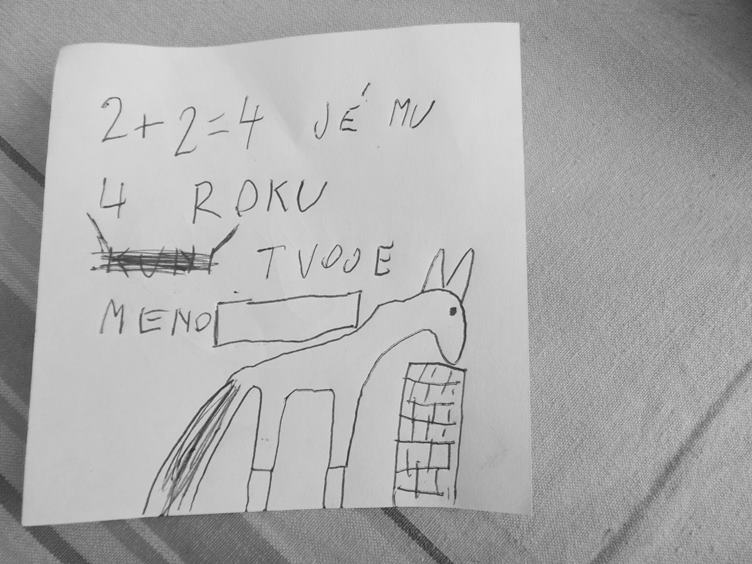 2+2=4 JÉ MU
4 ROKU
TVOJE
MENO